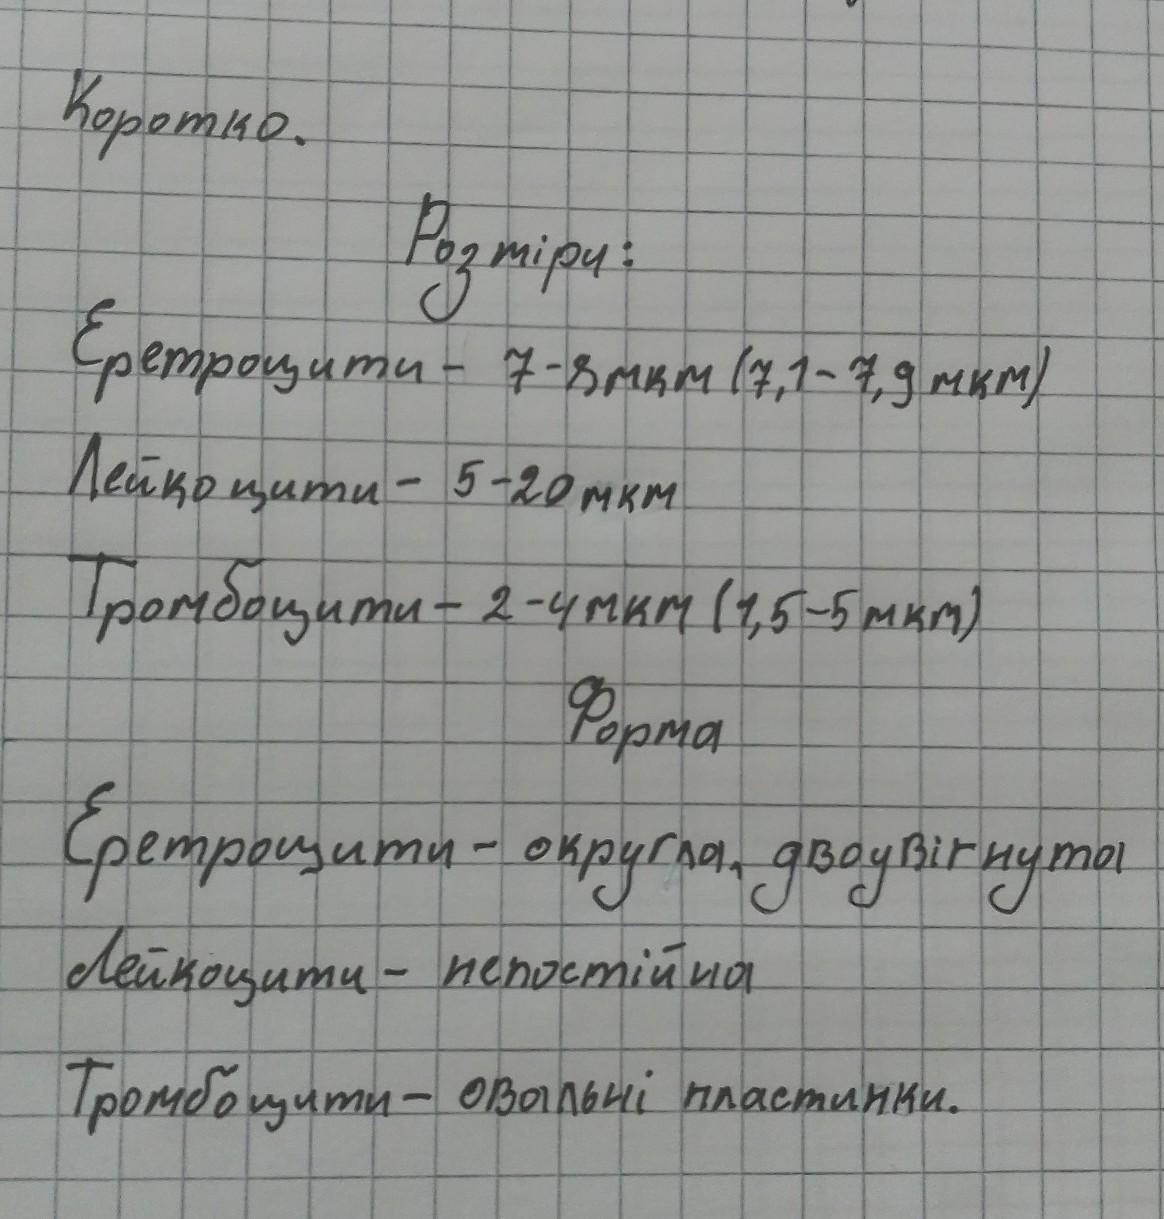 Коротко.
Розтіри:
Еретроцити - 7-8мкм (7,1-7,9мкм)
Лейкоцити - 5-20мкм
Тромбоцити - 2-4мкм (1,5-5мкм)
Форма
Еретроцити - округла, двоувігнута
Лейкоцити - непостійна
Тромбоцити - овальні пластинки.